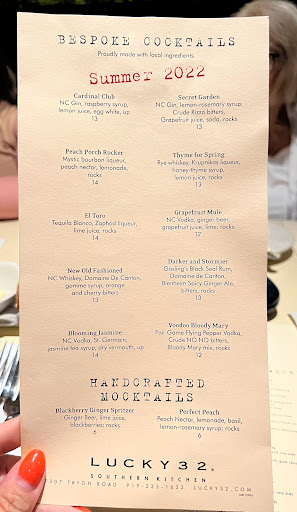 BESPOKE COCKTAILS
Proudly made with local ingredients.
Summer 2022
Cardinal Club
NC Gin, raspberry syrup,
lemon juice, egg white, up
13
Secret Garden
NC Gin, lemon-rosemary syrup,
Crude Rizzo bitters,
Grapefruit juice, soda, rocks
13
Peach Porch Rocker
Mystic bourbon liqueur,
peach nectar, lemonade,
rocks
14
Thyme for Spring
Rye whiskey, Krupnikas liqueur,
honey-thyme syrup,
lemon juice, rocks
13
El Toro
Tequila Blanco, Zaphod liqueur,
lime juice, rocks
14
Grapefruit Mule
NC Vodka, ginger beer,
grapefruit juice, lime, rocks
12
New Old Fashioned
NC Whiskey, Domaine De Canton,
gomme syrup, orange
and cherry bitters
13
Darker and Stormier
Gosling's Black Seal Rum,
Domaine de Canton,
Blenheim Spicy Ginger Ale,
bitters, rocks
13
Blooming Jasmine
NC Vodka, St. Germain,
jasmine tea syrup, dry vermouth, up
14
Voodoo Bloody Mary
Fair Game Flying Pepper Vodka,
Crude NO NO bitters,
Bloody Mary mix, rocks
12
HANDCRAFTED
MOCKTAILS
Blackberry Ginger Spritzer
Ginger Beer, lime juice,
blackberries, rocks
6
Perfect Peach
Peach Nectar, lemonade, basil,
lemon-rosemary syrup, rocks
6
LUCKY 32®
SOUTHERN KITCHEN
TRYON ROAD 919-233-1632 LUCKY32.COM